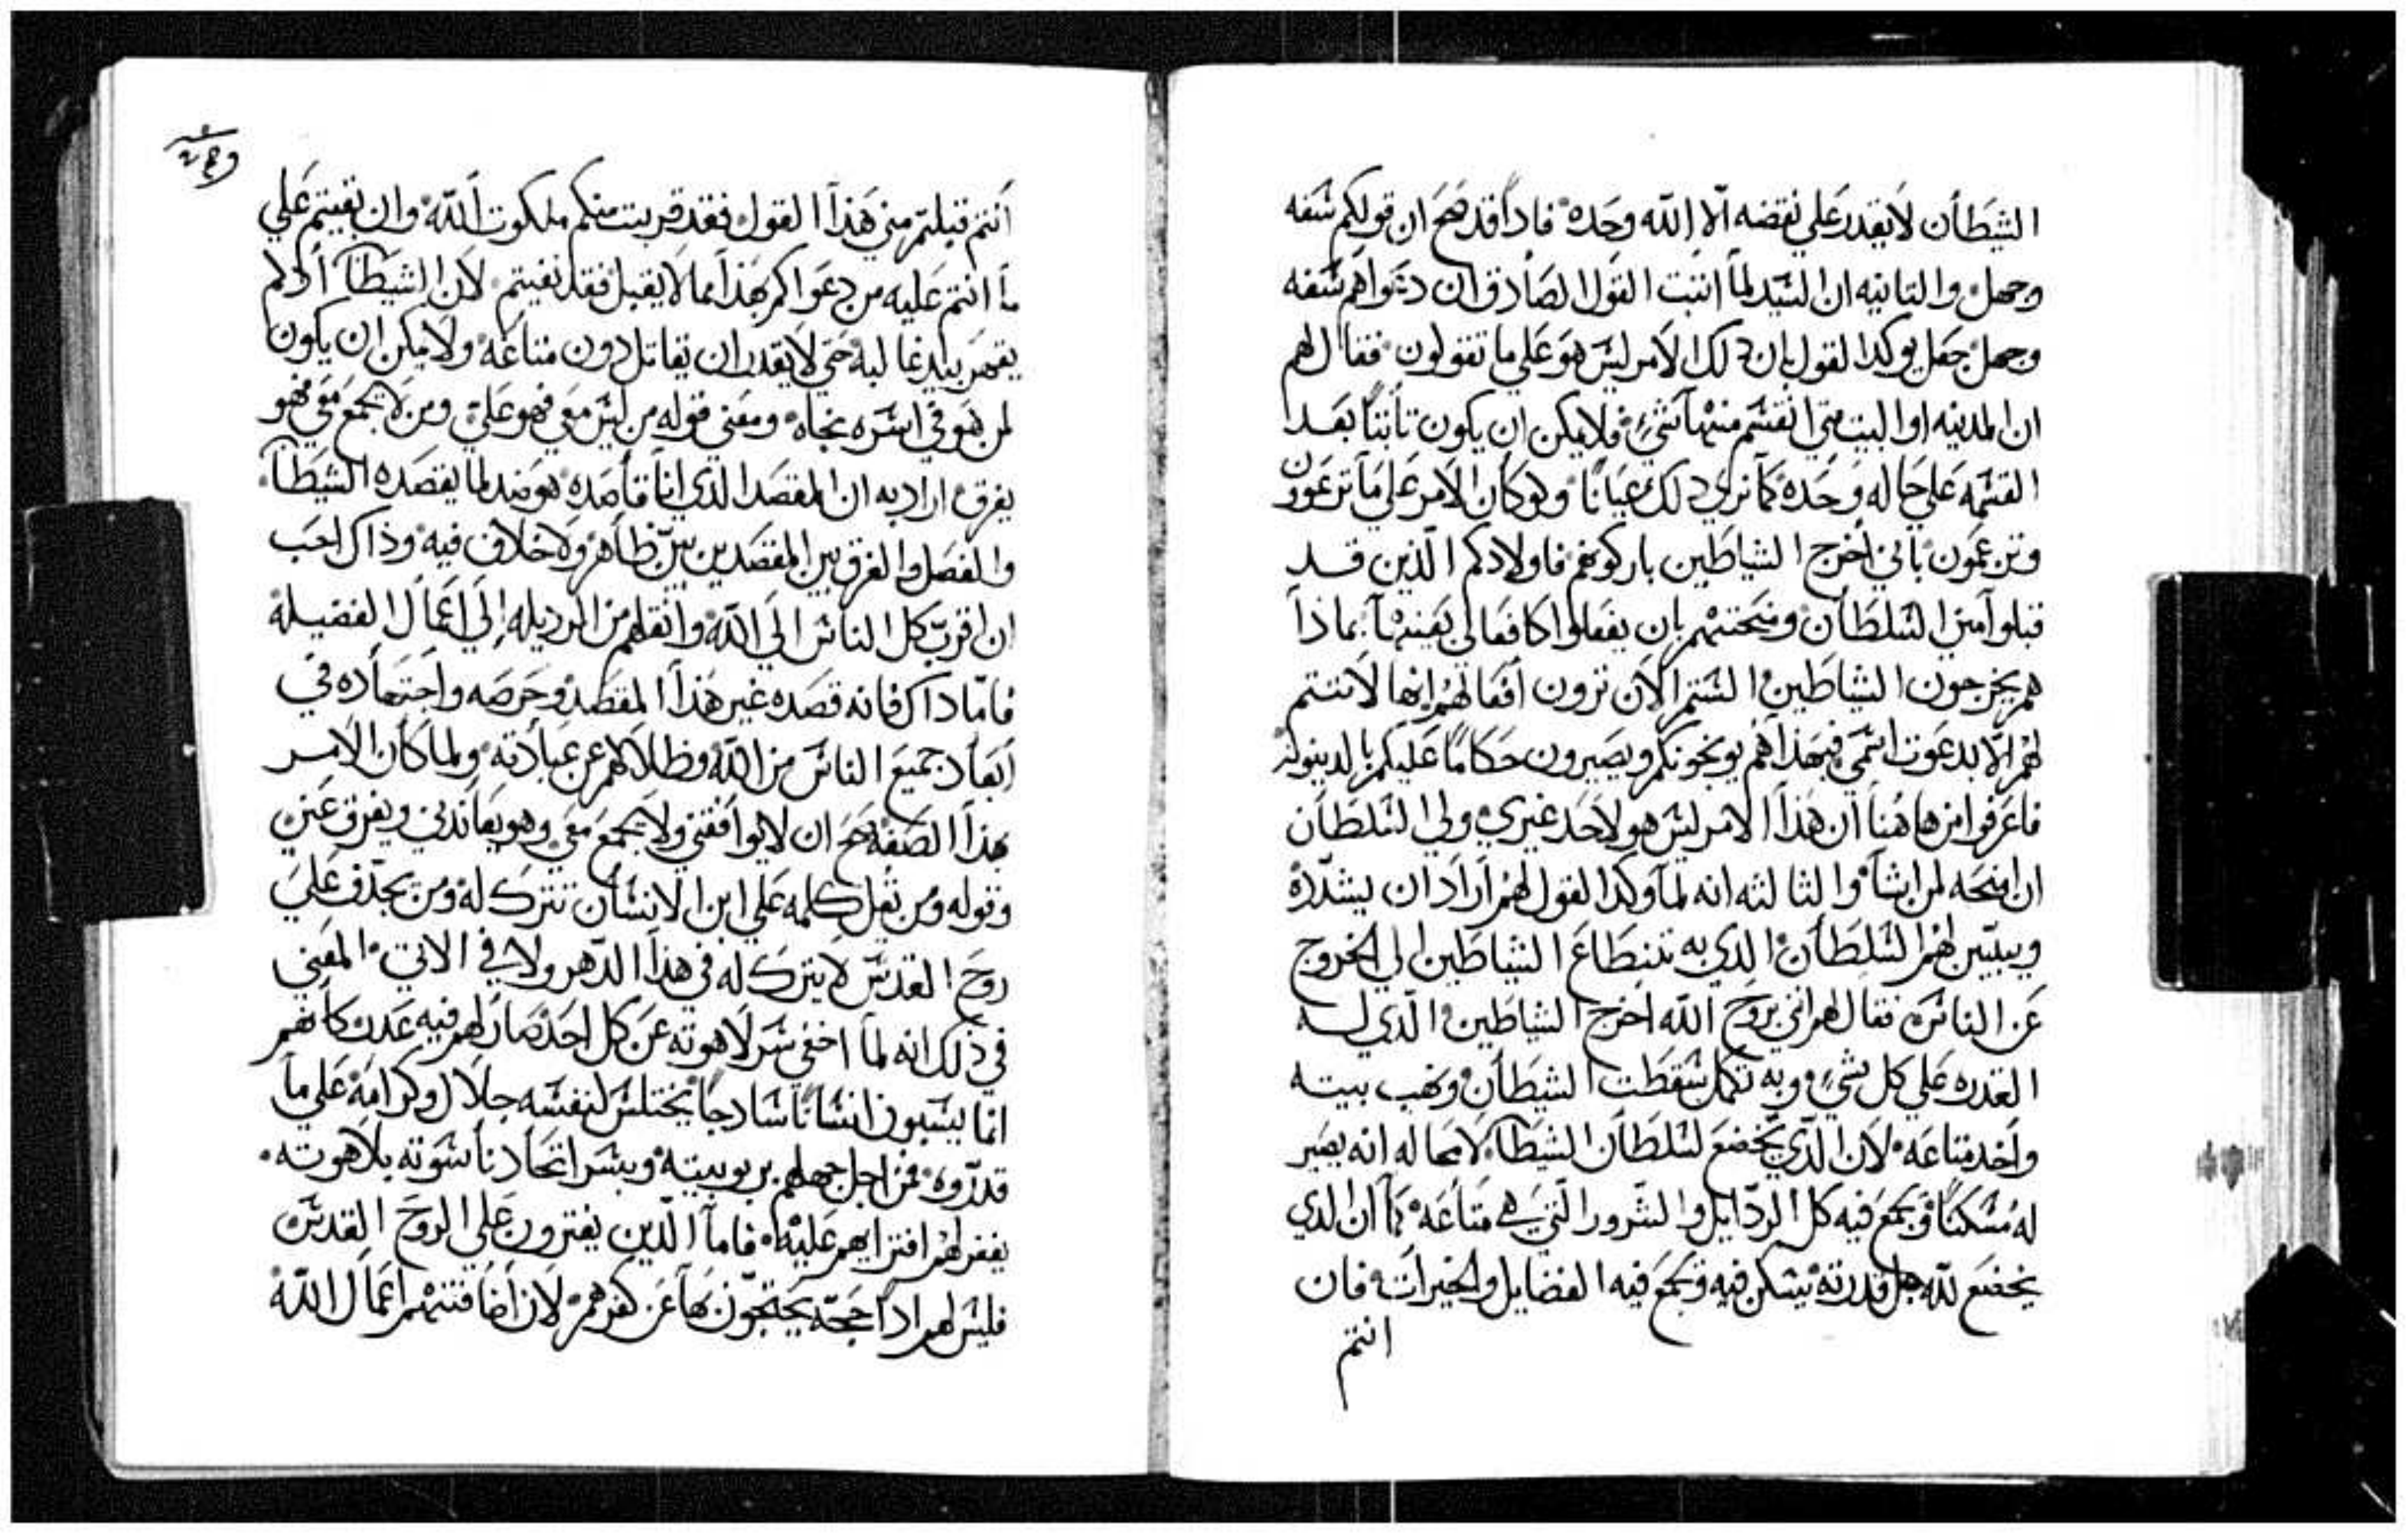 الشيطان لا يقدر علي نقضه الا الله وحده فادا قد صح ان قولكم سفه
وجهل والتانيه ان السيد لما اتبت القول الصادق ان دعواهم سفه
وجهل جعل يوكد القول بان دلك الامر ليس هو علي ما تقولون فقال لهم
ان المدينه او البيت متي انقسم منها شيء فلا يمكن ان يكون تابتا بعد
القسمه علي حاله وحده كما نري دلك عيانا ولو كان الامر علي ما تزعمون
وتزعمون باني اخرج الشياطين باركونهم فاولادكم الدين قد
قبلوا مني السلطان ومنحتهم بان يفعلوا كافعالي بعينها بماذا
هم يخرجون الشياطين الستم الان ترون افعالهم انها لا تتم
لهم الا بدعوت اسمي فبهذا هم يوبخونكم ويصيرون حكاما عليكم بالدينونه
فاعرفوا من هاهنا ان هذا الامر ليس هو لاحد غيري ولي السلطان
ان امنحه لمن اشا والثالثه انه لما وكد القول لهم اراد ان يشدده
ويبين لهم السلطان الدي به تنطاع الشياطين الي الخروج
عن الناس فقال لهم اني بروح الله اخرج الشياطين الدي له
القدره علي كل شيء وبه تكمل سقطت الشيطان ونهب بيته
واخد متاعه لان الدي يخضع لسلطان الشيطا لا محاله انه يصير
له مسكنا ويجمع فيه كل الردايل والشرور التي هي متاعه كما ان الدي
يخضع لله جل قدرته يسكن فيه ويجمع فيه الفضايل والخيرات فان
انتم
انتم قبلتم مني هذا القول فقد قربت منكم ملكوت الله وان بقيتم علي
ما انتم عليه من دعواكم بهذا مما لا يقبل فقد نفيتم لان الشيطا
يقهر بيد غالبه حتي لا يقدر ان يقاتل دون متاعه ولا يمكن ان يكون
لمن هو في اسره نجاه ومعني قوله من ليس معي فهو علي ومن لا يجمع معي فهو
يفرق اراد به ان المقصد الدي انا قاصده هو ضد لما يقصده الشيطا
والفصل والفرق بين المقصدين بين ظاهر ولا خلاف فيه وذاك احب
ان اقرب كل الناس الي الله وانقلهم من الرديله الي اعمال الفضيلة
فاما داك فانه قصده غير هذا المقصد وحرصه واجتهاده في
ابعاد جميع الناس من الله وظلالهم عن عبادته ولما كان الامر
بهذا الصفة صح ان لا يوافقني ولا يجمع معي وهو يعاندني ويفرق عني
وقوله ومن يقل كلمه علي ابن الانسان تترك له ومن يجدف علي
روح القدس لا يترك له في هذا الدهر ولا في الاتي المعني
في ذلك انه لما اخفي سر لاهوته عن كل احد صار لهم فيه عدر كانهم
انما يسبون انسانا سادجا يختلس لنفسه جلال وكرامة علي ما
قدروه فمن اجل جهلهم بربوبيته وبسر اتحاد ناسوته بلاهوته
يغفر لهم افترايهم عليه فاما الدين يفترون علي الروح القدس
فليس لهم ادا حجه يحتجون بها عن كفرهم لان اضافتهم اعمال الله